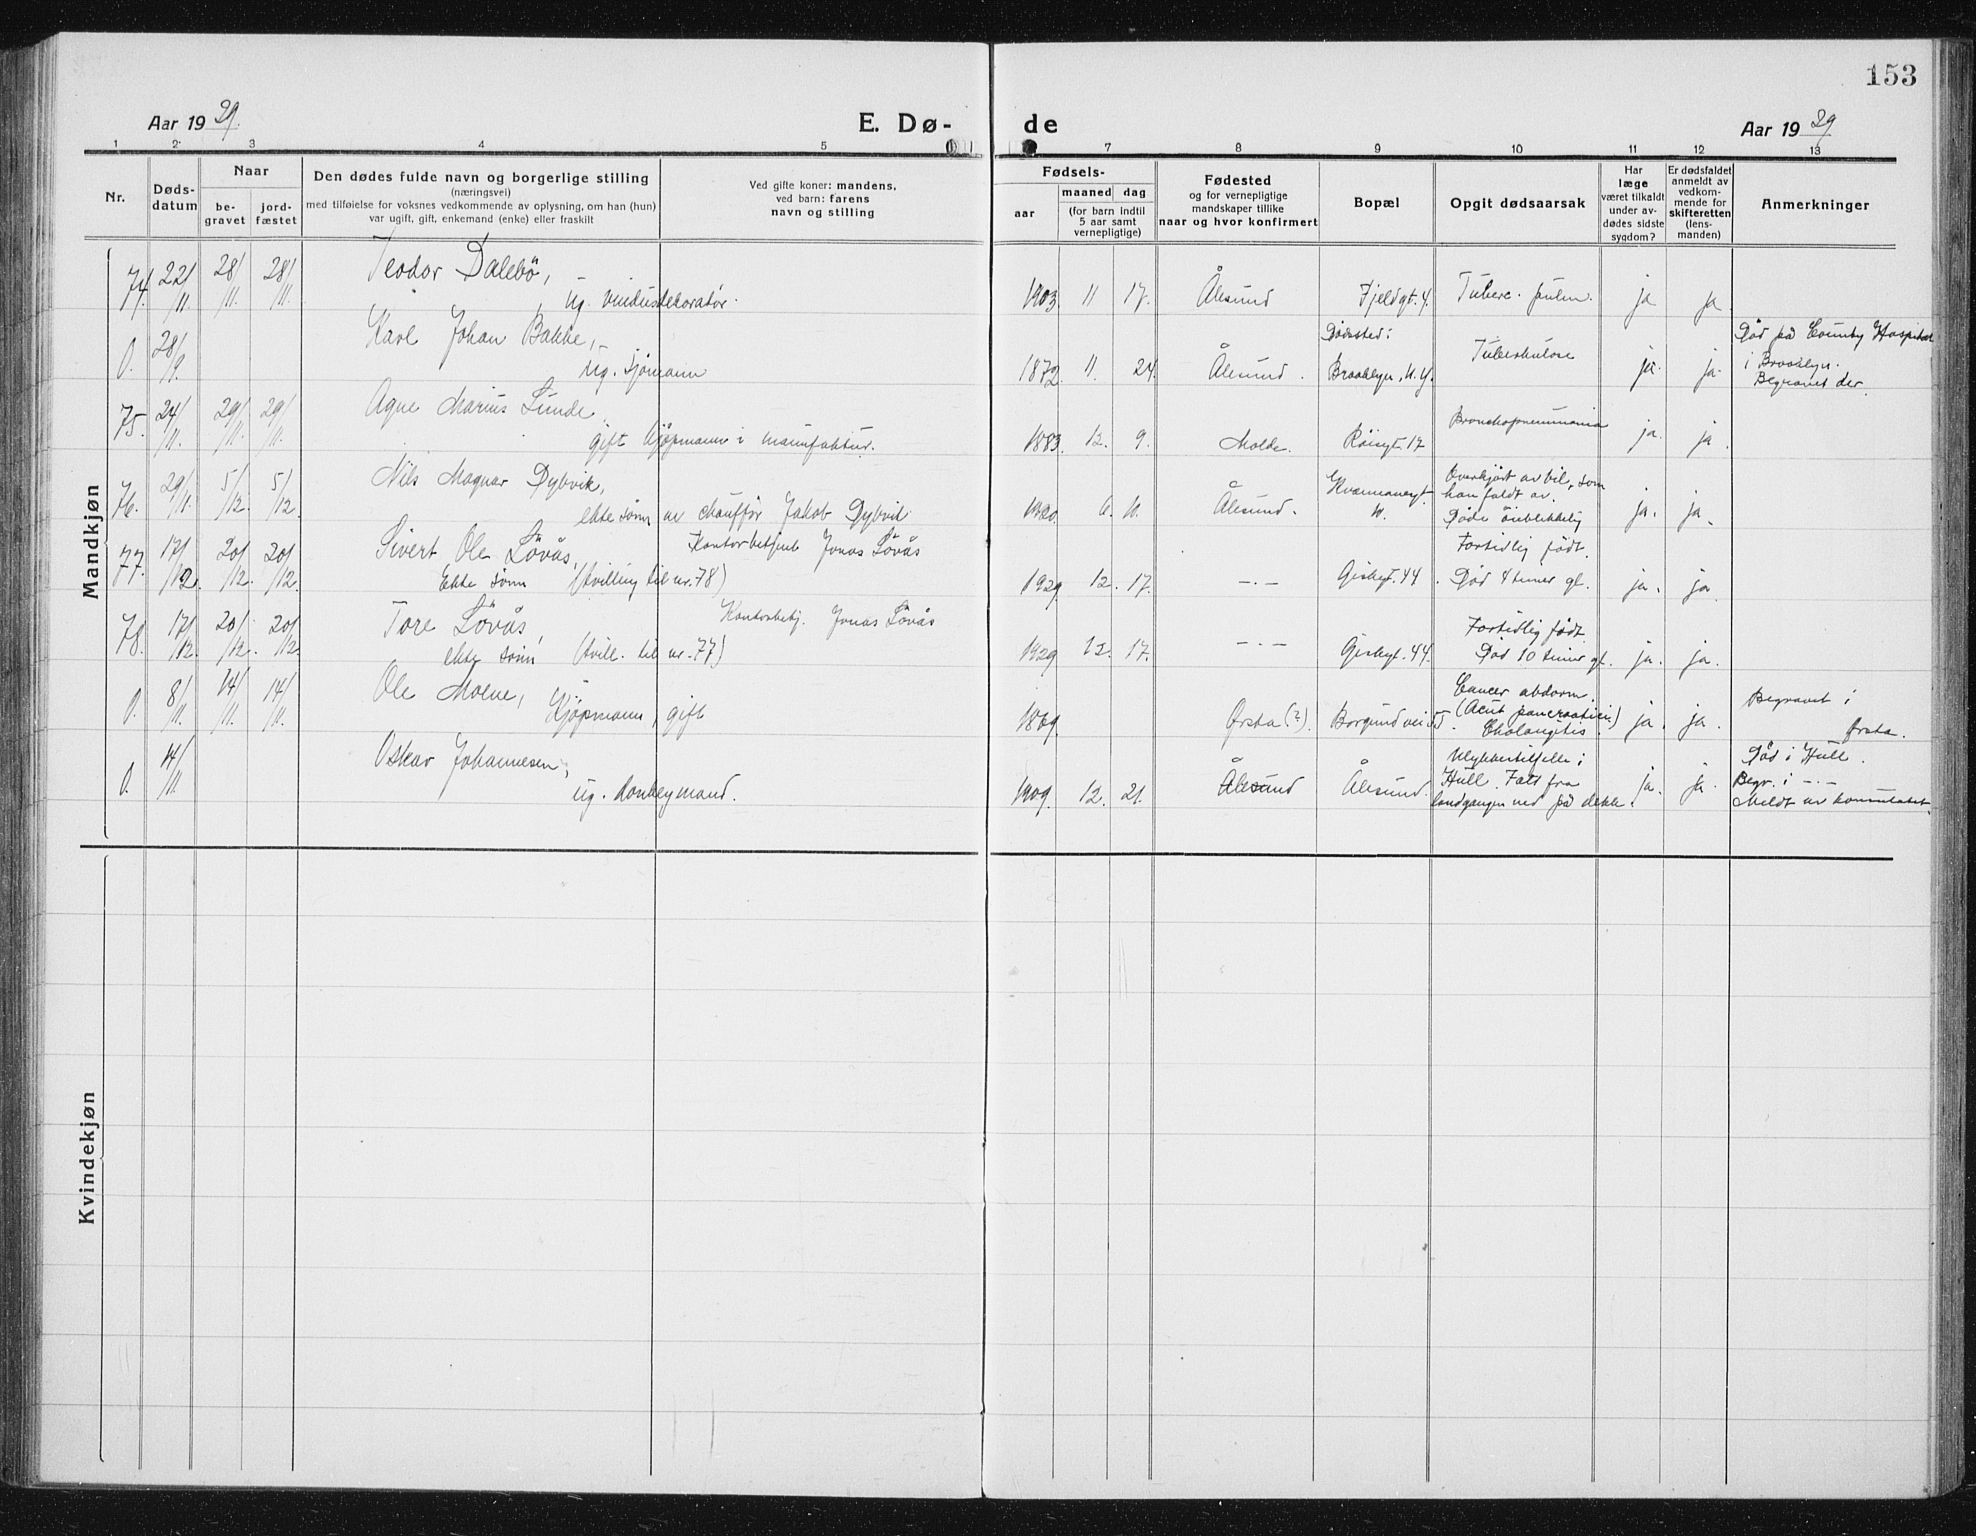 153
Aar 1929.
E. Dø-
de
Aar 1929
1 2 3 4 5 7 8 9 10 11 12 13
Nr.
Døds-
datum
Naar
be-
gravet
jord-
fæstet
Den dødes fulde navn og borgerlige stilling
(næringsvei)
med tilføielse for voksnes vedkommende av oplysning, om han (hun)
var ugift, gift, enkemand (enke) eller fraskilt
Ved gifte koner: mandens,
ved barn: farens
navn og stilling
Fødsels-
aar
maaned dag
(for barn indtil
5 aar samt
vernepligtige)
Fødested
og for vernepligtige
mandskaper tillike
naar og hvor konfirmert
Bopæl
Opgit dødsaarsak
Har
læge
været tilkaldt
under av-
dødes sidste
sygdom?
Er dødsfaldet
anmeldt av
vedkom-
mende for
skifteretten
(lens-
manden)
Anmerkninger
Mandkjøn
74. 22/11 28/11 28/11 Teodor Dalebö,
ug. vindusdekoratør. 1903 11 17. Ålesund Fjeldgt. 4. Tuberc. pulm. ja ja
0. 28/9. Karl Johan Bakke,
ug. sjømann 1872 11. 24. Ålesund.
Dødssted:
Brooklyn, N.Y. Tuberkulose ja. ja.
Død på County Hospital
i Brooklyn.
Begravet der.
75. 24/11. 29/11. 29/11. Agne Marius Lunde.
gift kjøpmann i manufaktur. 1883. 12. 9. Molde. Röisgt. 17 Bronchopneumonia ja. ja
76. 29/11. 5/12. 5/12. Nils Magnar Dybvik,
ekte sönn av chauffør Jakob Dybvik. 1920. 6. Ålesund.
Overkjørt av bil, som
han faldt av.
Døde öieblikkelig ja. ja.
77. 17/12. 20/12. 20/12. Sivert Ole Lövås, Kontorbetjent Jonas Lövås
Ekte sönn (tvilling til nr. 78) 1929. 12. 17. —.— Giskegt. 44.
Fortidlig født.
Død 4 timer gl. ja. ja.
78. 17/12. 20/12. 20/12. Tore Lövås, Kontorbetj. Jonas Lövås
ekte sönn (tvill. til nr. 77) 1929 12. 17. —.— Giskegt. 44.
Fortidlig født.
Død 10 timer gl. ja. ja.
0. 8/11. 14/11. 14/11. Ole Molne,
Kjøpmann, gift 1869. Ørsta (?). Borgundvei
Cancer abdom.
(Acut pancreatitis)
Cholangitis. ja. ja.
Begravet i
Ørsta.
0. 14/11. Oskar Johannesen,
ug. donkeymand. 1909. 12. 21. Ålesund Ålesund.
Ulykkestilfelle i
Hull. Falt fra
landgangen ned på dekk. ja. ja.
Død i Hull.
Begr. i —.—
Meldt av konsulatet.
Kvindekjøn